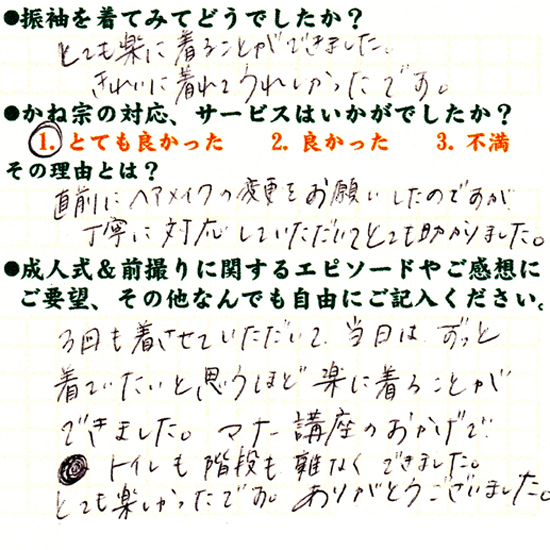 ●振袖を着てみてどうでしたか？
とても楽に着ることができました。
きれいに着れてうれしかったです。
●かね宗の対応、サービスはいかがでしたか？
1. とても良かった　2. 良かった　3. 不満
その理由とは？
直前にヘアメイクの変更をお願いしたのですが
丁寧に対応していただいてとても助かりました。
●成人式＆前撮りに関するエピソードやご感想に
ご要望、その他なんでも自由にご記入ください。
3回も着させていただいて、当日は ずっと
着ていたいと思うほど 楽に着ることが
できました。マナー講座のおかげで
トイレも階段も難なくできました。
とても楽しかったです。ありがとうございました。